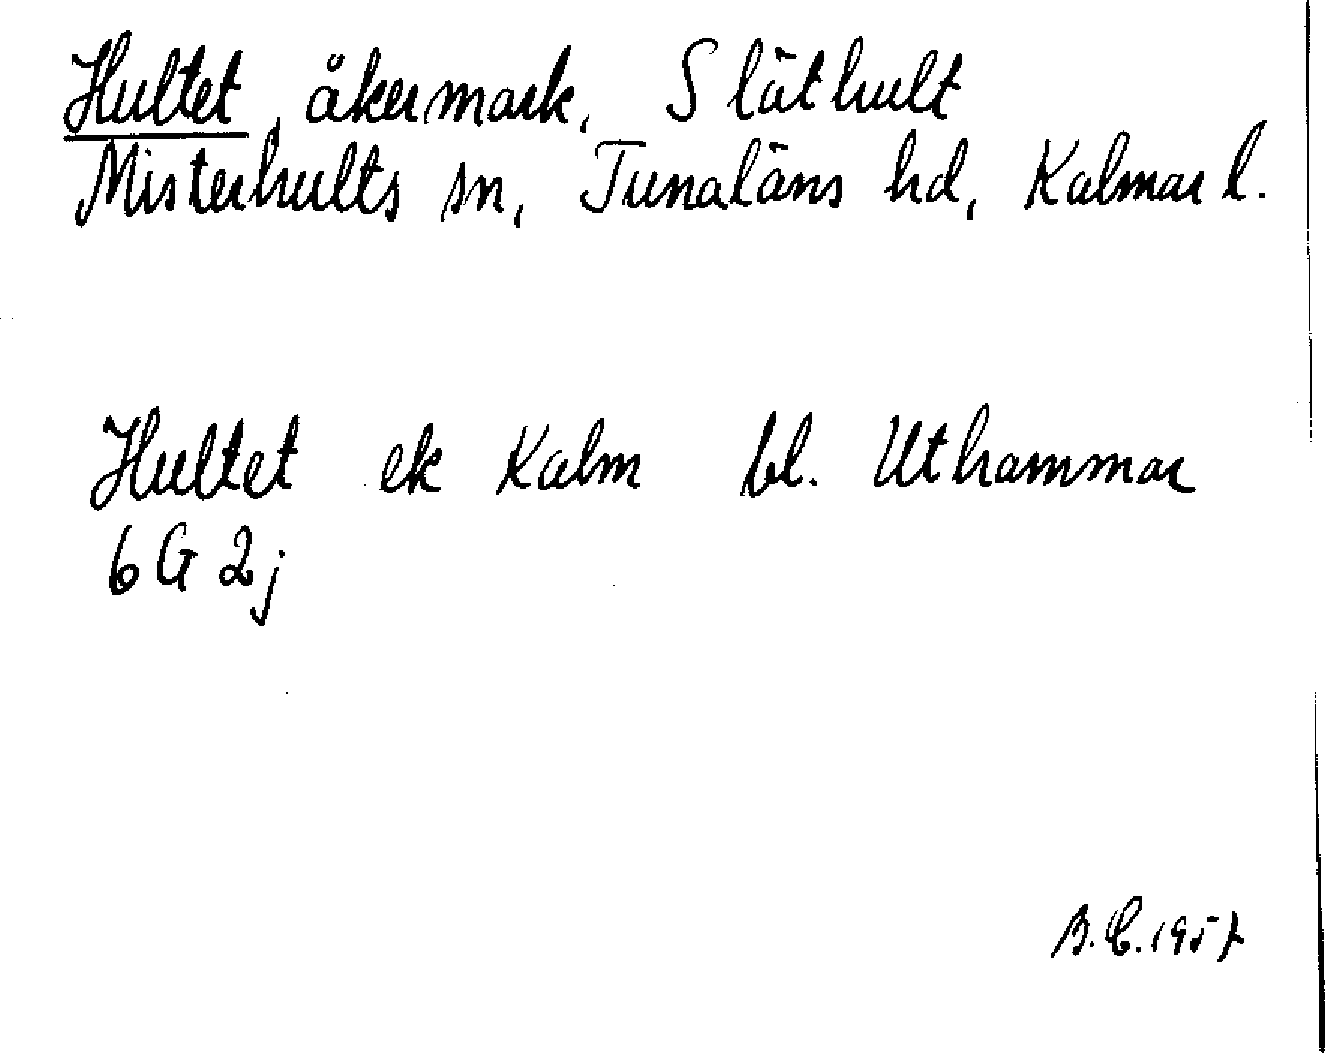 Hultet, åkermark, Släthult
Misterhults sn, Tunaläns hd, Kalmar l.
Hultet ek Kalm bl. Uthammar
6 G 2 j
B.C. 1957